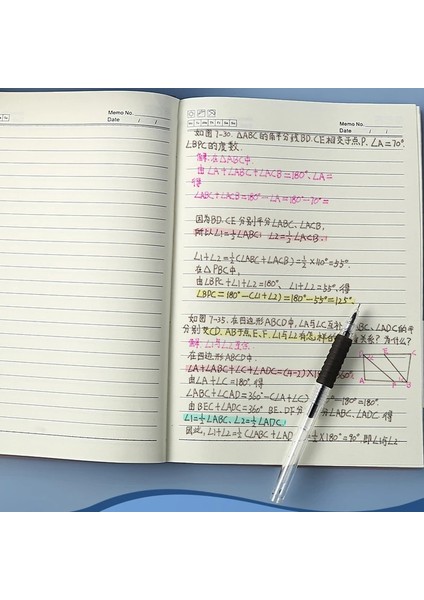 Memo No.
Date / /
Memo No.
Date / /
Mo Tu We Th Fr Sa Su
如图7-30. △ABC的角平分线BD.CE相交于点P. ∠A=70°.
∠BPC的度数.
解: 在△ABC中.
由∠A+∠ABC+∠ACB=180°. ∠A=
得
∠ABC+∠ACB=180°-∠A=180°-70°=
因为BD.CE分别平分∠ABC.∠ACB,
所以∠1=½∠ABC. ∠2=½∠ACB.
∠1+∠2=½(∠ABC+∠ACB)=½×110°=55°.
在△PBC中,
由∠BPC+∠1+∠2=180°. ∠1+∠2=55°.得
∠BPC=180°-(∠1+∠2)=180°-55°=125°.
如图7-35. 在四边形ABCD中,∠A与∠C互补 ABC、∠ADC的平
分别交CD、AB于点E、F. ∠1与∠2有怎样的 关系? 为什么?
解: ∠1与∠2互余.
在四边形ABCD中.
∠A+∠ABC+∠C+∠ADC=(4-2)×180 360°
由∠A+∠C=180°. 得
∠ABC+∠CAD=360°-(∠A+∠C) -180°=180°.
由BEC+∠ADC=360° BE、DF分 分∠ABC、∠ADC. 得
∠1=½∠ABC、∠2=½∠ADC.
因此, ∠1+∠2=½∠ABC+∠AD =½×180°=90°. 即∠1与∠2